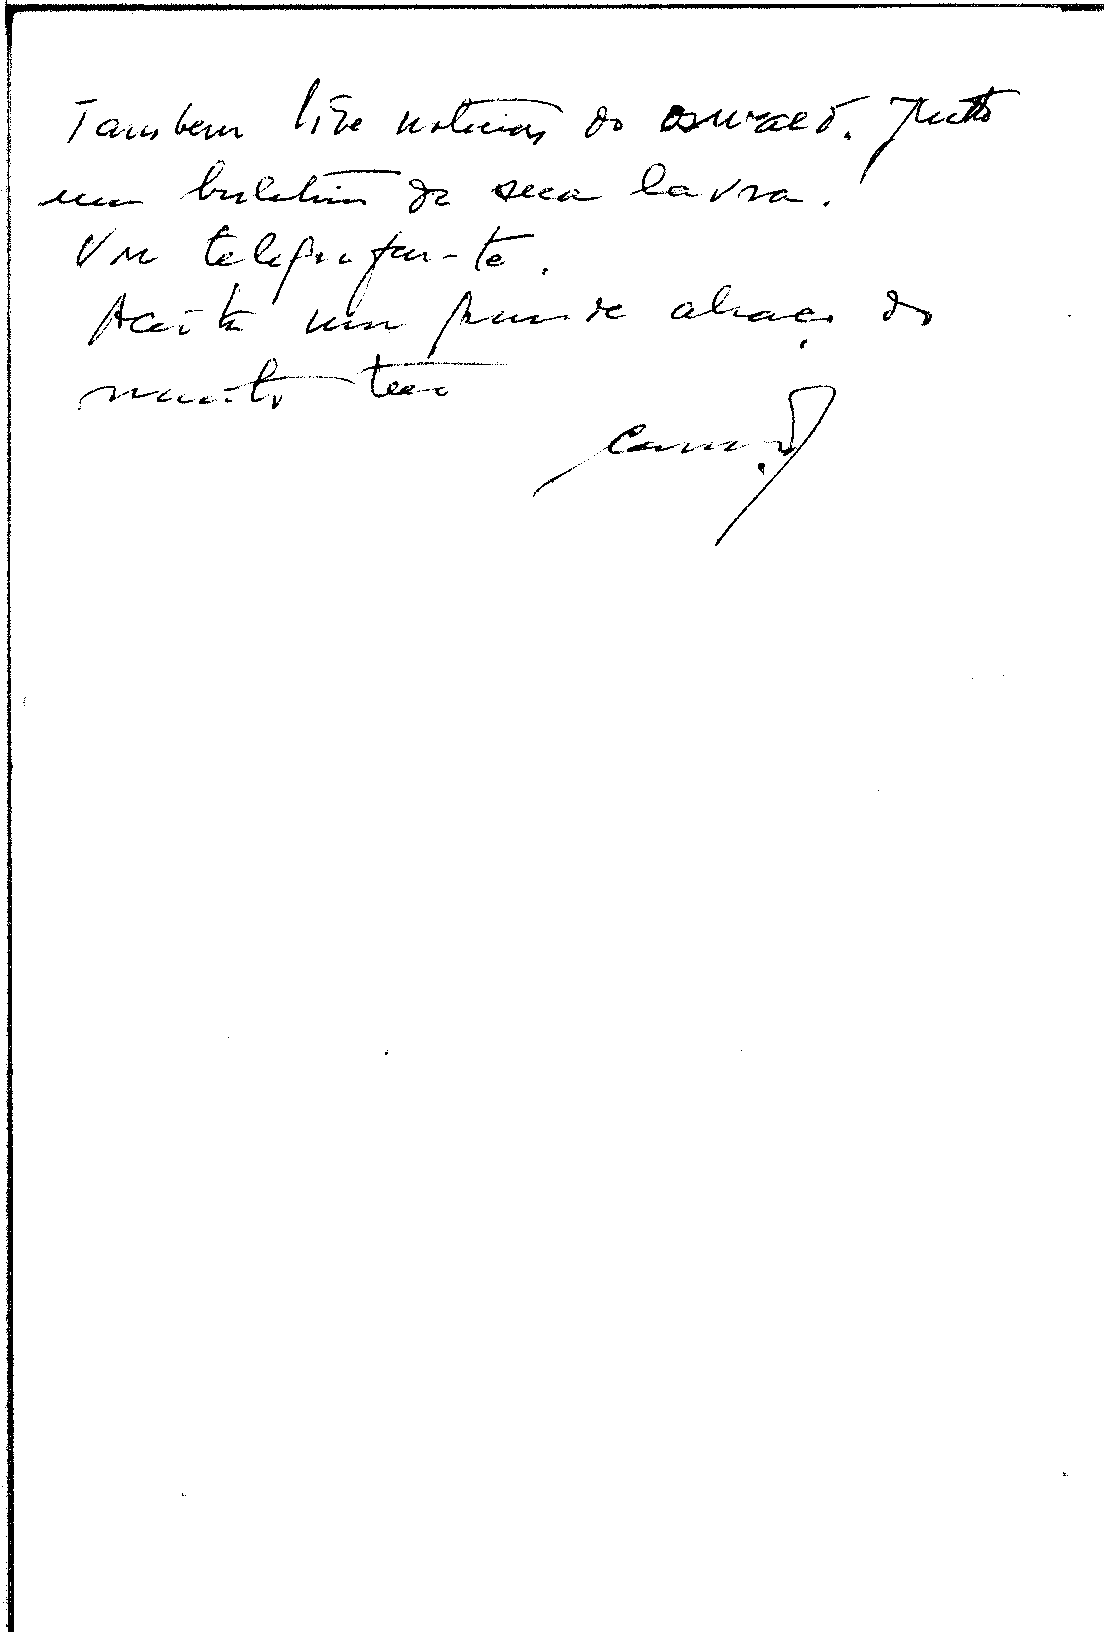 Tambem tive noticias do Oswaldo. Junto
um boletim da seca lavra.
Vou telegrafar-te.
Aceita um grande abraço do
muito teu